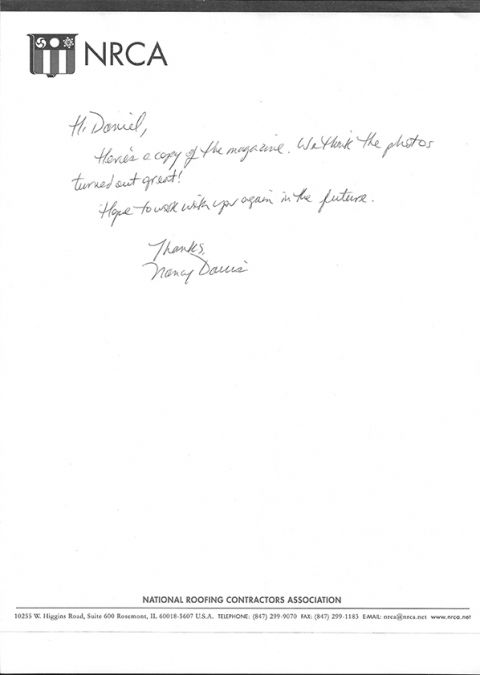 NRCA
Hi Daniel,
Here's a copy of the magazine. We think the photos
turned out great!
Hope to work with you again in the future.
Thanks,
Nancy Davis
NATIONAL ROOFING CONTRACTORS ASSOCIATION
10255 W. Higgins Road, Suite 600 Rosemont, IL 60018-5607 U.S.A. TELEPHONE: (847) 299-9070 FAX: (847) 299-1183 E-MAIL: nrca@nrca.net www.nrca.net